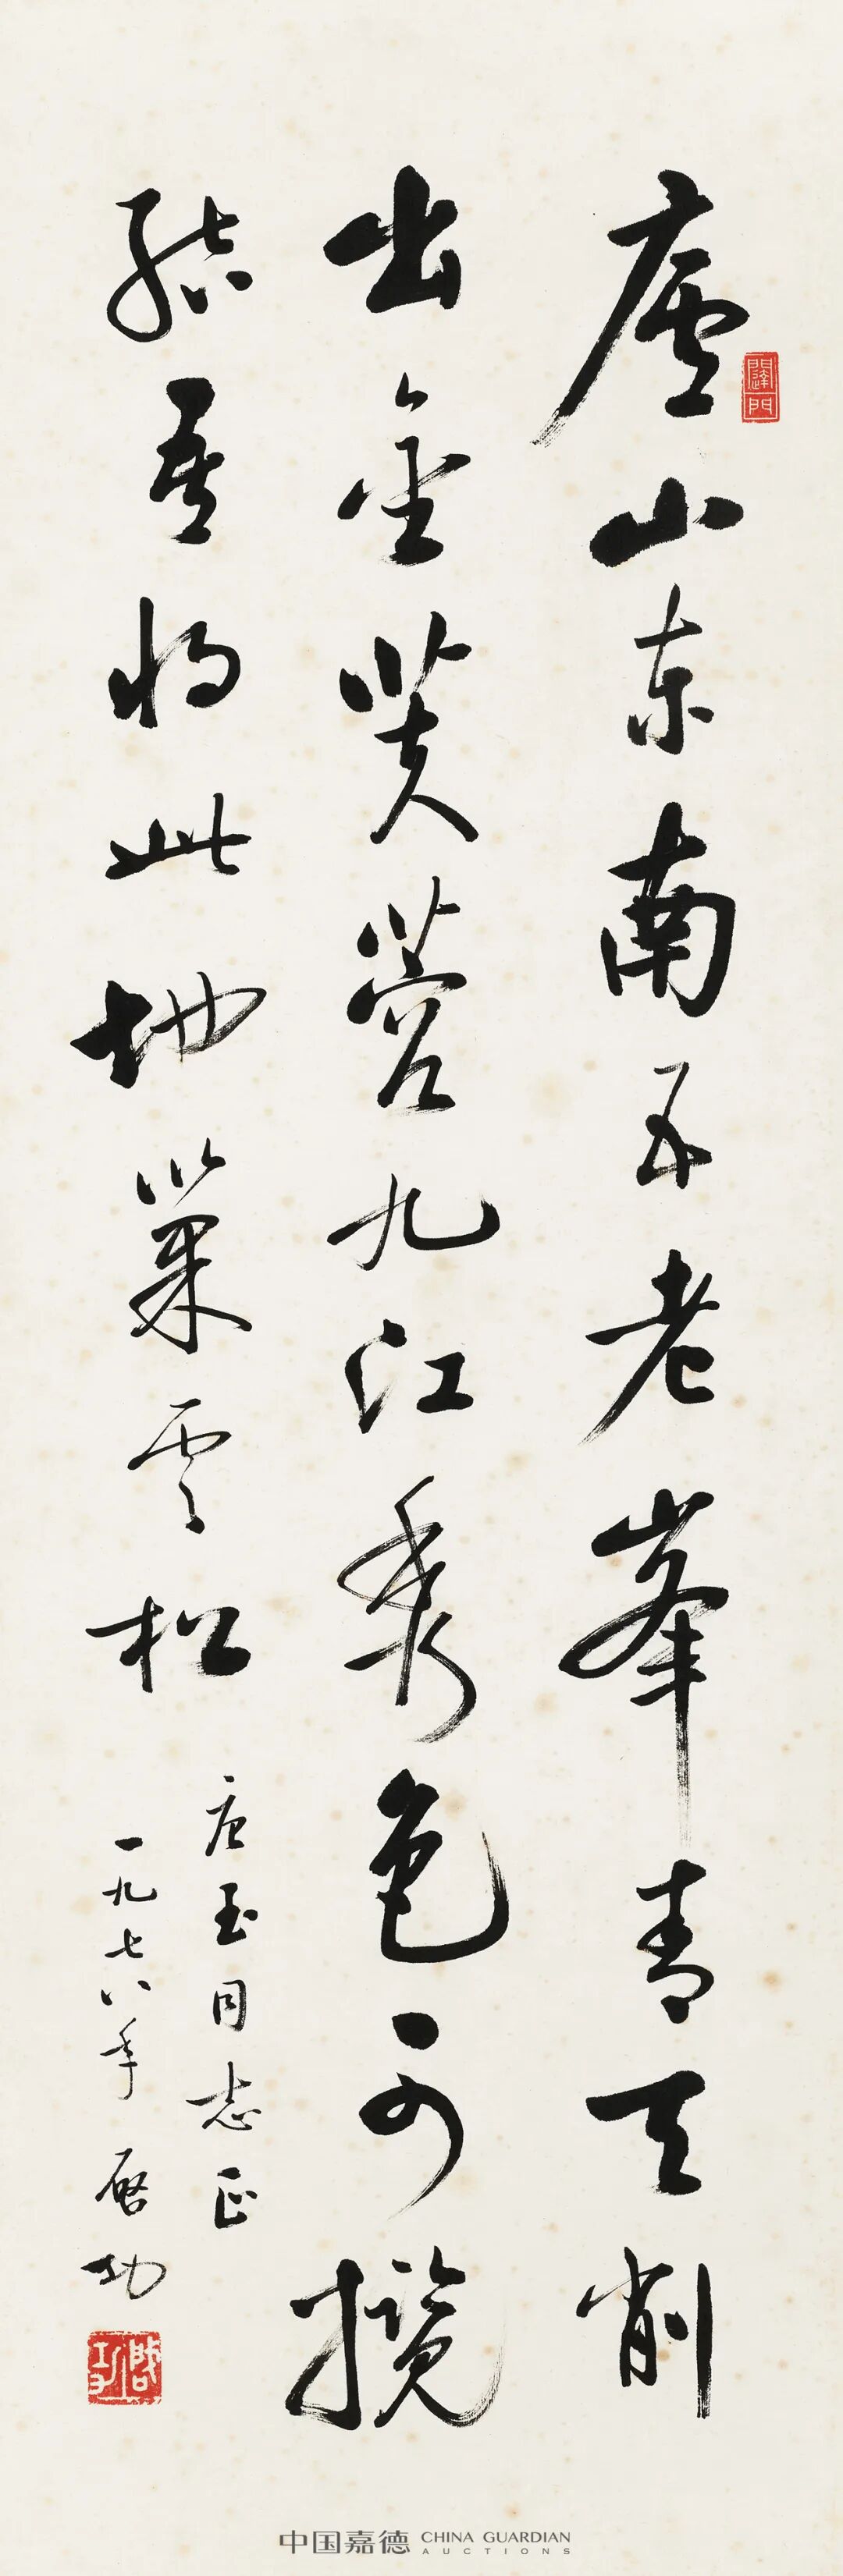 庐山东南五老峯青天削
出金芙蓉九江秀色可揽
结吾将此地巢云松
唐玉同志正
一九七八年 启功
启功
中国嘉德 CHINA GUARDIAN
AUCTIONS